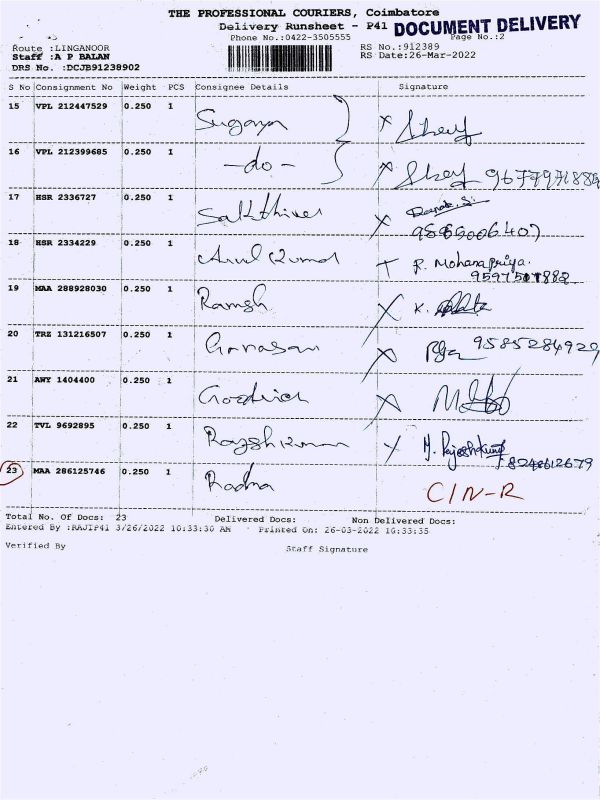 THE PROFESSIONAL COURIERS, Coimbatore
Delivery Runsheet - P41
DOCUMENT DELIVERY
Phone No.:0422-3505555
Page No.:2
Route :LINGANOOR
RS No.:912389
Staff :A P BALAN
RS Date:26-Mar-2022
DRS No. :DCJB91238902
S No Consignment No Weight PCS Consignee Details Signature
15 VPL 212447529 0.250 1 Suganya
16 VPL 212399685 0.250 1 -do-
17 HSR 2336727 0.250 1 Sakthivel
18 HSR 2334229 0.250 1 Arul Kumar R. Mohanapriya
19 MAA 288928030 0.250 1 Ramesh K.
20 TRZ 131216507 0.250 1 9585284929
21 AWY 1404400 0.250 1 Goodrich
22 TVL 9692895 0.250 1 Rajesh Kumar M. Rajeshkumar
23 MAA 286125746 0.250 1 Radha C/N-R
Total No. Of Docs: 23 Delivered Docs: Non Delivered Docs:
Entered By :RAJIP41 3/26/2022 10:33:30 AM Printed On: 26-03-2022 10:33:35
Verified By
Staff Signature